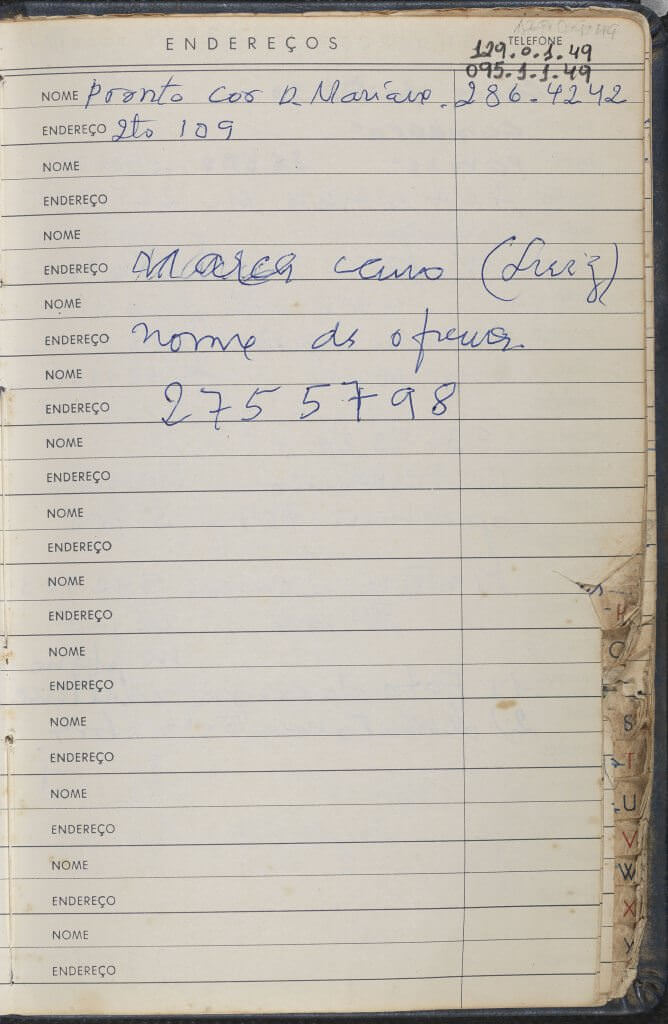 ENDEREÇOS
TELEFONE
129.0.1.49
095.1.1.49
NOME Pronto Cor D. Mariana. 286.4242
ENDEREÇO 2to 109
NOME
ENDEREÇO
NOME
ENDEREÇO (Luiz)
NOME
ENDEREÇO nome da
NOME
ENDEREÇO 2755798
NOME
ENDEREÇO
NOME
ENDEREÇO
NOME
ENDEREÇO
NOME
ENDEREÇO
NOME
ENDEREÇO
NOME
ENDEREÇO
NOME
ENDEREÇO
NOME
ENDEREÇO
S
T
U
V
W
X
Y